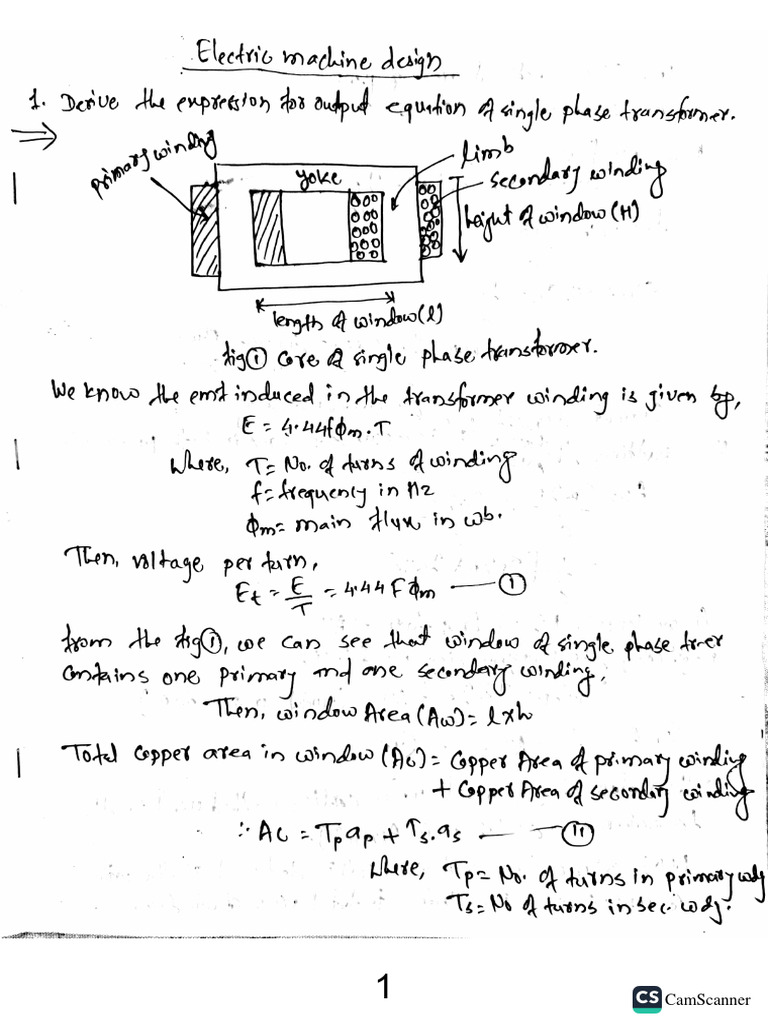 Electric machine design
1. Derive the expression for output equation of single phase transformer.
⇒
primary winding
yoke
limb
secondary winding
height of window (H)
length of window (l)
fig ① Core of single phase transformer.
We know the emf induced in the transformer winding is given by,
E = 4.44fΦm.T
Where, T = No. of turns of winding
f = frequency in Hz
Φm = main flux in wb.
Then, voltage per turn,
Et = E/T = 4.44 F Φm —— ①
from the fig①, we can see that window of single phase trer
contains one primary and one secondary winding,
Then, window Area (Aw) = l x h
Total copper area in window (Ac) = Copper Area of primary winding
+ Copper Area of secondary winding
∴ Ac = Tp ap + Ts.as —— ⑪
Where, Tp = No. of turns in primary wdg
Ts = No of turns in sec. wdg.
1
CS CamScanner